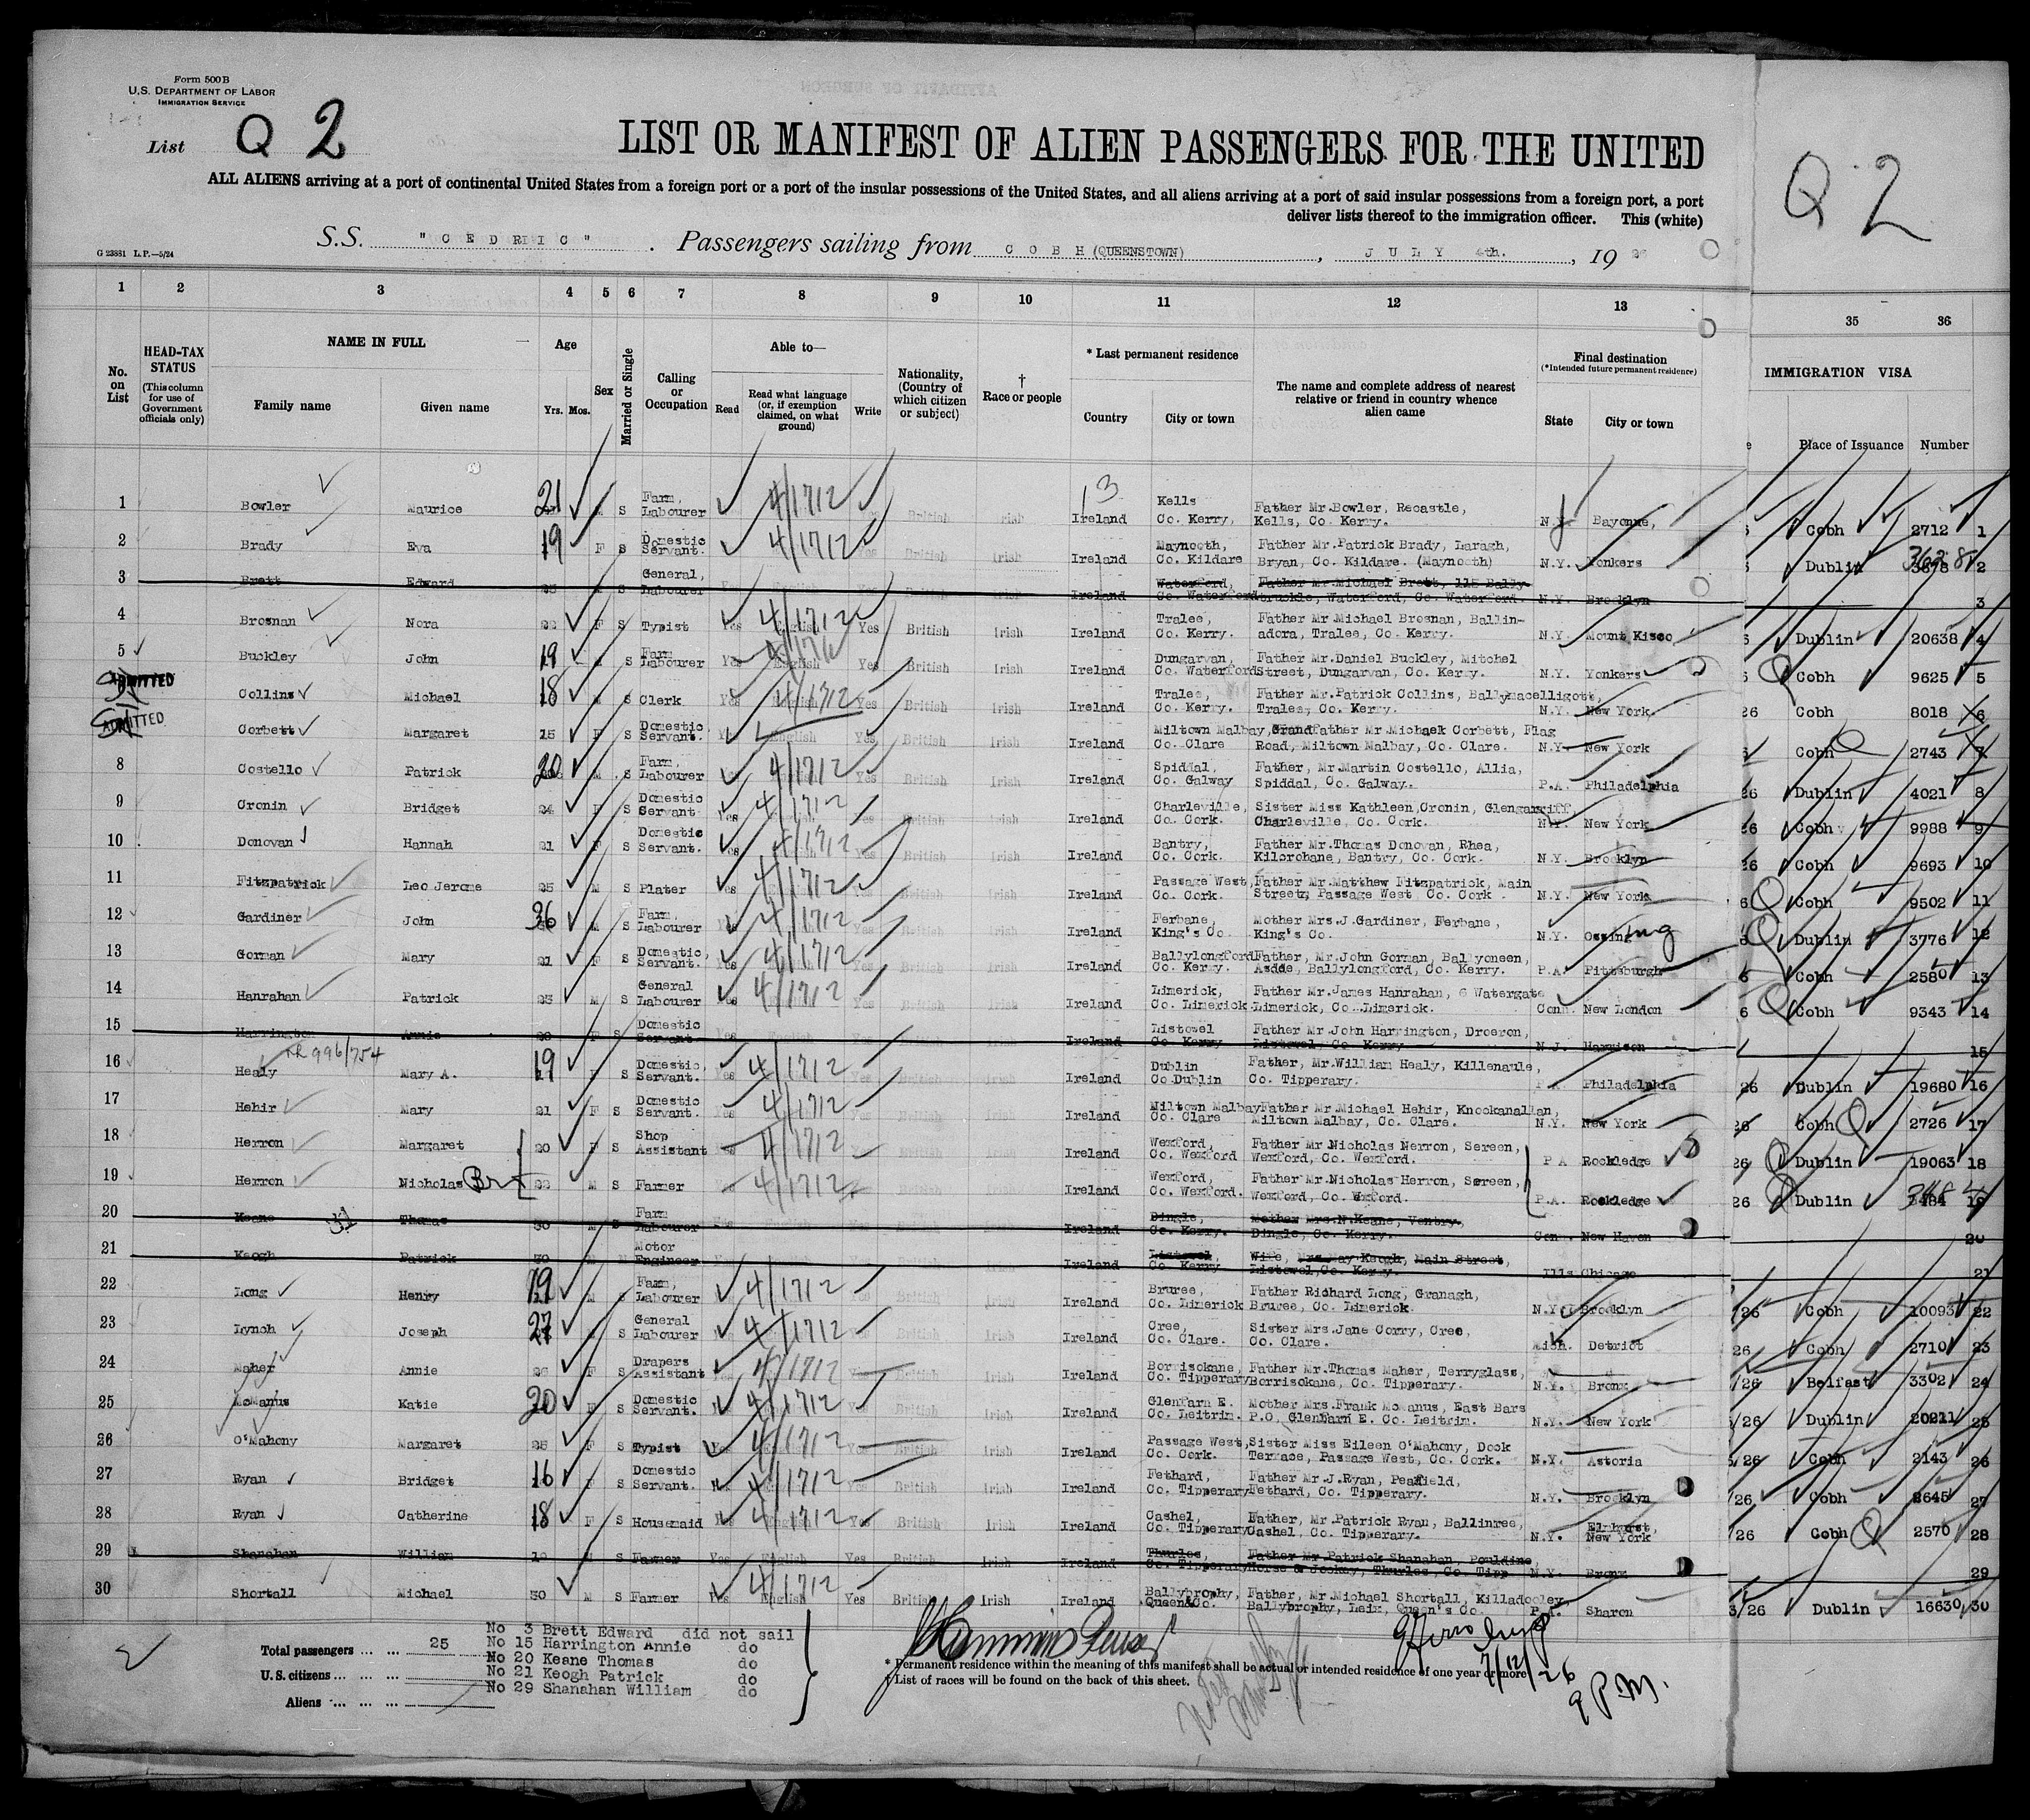 Form 500 B
U.S. DEPARTMENT OF LABOR
IMMIGRATION SERVICE
List Q 2
LIST OR MANIFEST OF ALIEN PASSENGERS FOR THE UNITED
Q 2
ALL ALIENS arriving at a port of continental United States from a foreign port or a port of the insular possessions of the United States, and all aliens arriving at a port of said insular possessions from a foreign port, a port
deliver lists thereof to the immigration officer. This (white)
G 23881 L.P.—5/24
S.S. "CEDRIC". Passengers sailing from COBH (QUEENSTOWN), JULY 4th., 19
1 2 3 4 5 6 7 8 9 10 11 12 13 35 36
No. on List
HEAD-TAX STATUS (This column for use of Government officials only)
NAME IN FULL Family name Given name
Age Yrs. Mos.
Sex
Married or Single
Calling or Occupation
Able to— Read Read what language (or, if exemption claimed, on what ground) Write
Nationality, (Country of which citizen or subject)
† Race or people
* Last permanent residence Country City or town
The name and complete address of nearest relative or friend in country whence alien came
Final destination (*Intended future permanent residence) State City or town
IMMIGRATION VISA Place of Issuance Number
1 Bowler Maurice 21 M S Farm, Labourer 4/1712 Yes British Irish Ireland Kells Co. Kerry, Father Mr.Bowler, Recastle, Kells, Co. Kerry. N.Y. Bayonne, Cobh 2712 1
2 Brady Eva 19 F S Domestic Servant. 4/1712 Yes British Irish Ireland Maynooth, Co. Kildare Father Mr.Patrick Brady, Laragh, Bryan, Co. Kildare. (Maynooth) N.Y. Yonkers Dublin 2
3 Brett Edward 25 M S General, Labourer Yes English Yes British Irish Ireland Waterford, Co. Waterford Father Mr.Michael Brett, 115 Bally- truckle, Waterford, Co. Waterford. N.Y. Brooklyn 3
4 Brosnan Nora 22 F S Typist Yes 4/1712 English Yes British Irish Ireland Tralee, Co. Kerry. Father Mr Michael Brosnan, Ballin- adora, Tralee, Co. Kerry. N.Y. Mount Kisco Dublin 20638 4
5 Buckley John 19 M S Farm Labourer Yes English Yes British Irish Ireland Dungarvan, Co. Waterford Father Mr.Daniel Buckley, Mitchel Street, Dungarvan, Co. Kerry. N.Y. Yonkers Cobh 9625 5
ADMITTED Collins Michael 18 M S Clerk Yes 4/1712 Yes British Irish Ireland Tralee, Co. Kerry. Father Mr.Patrick Collins, Ballymacelligott, Tralee, Co. Kerry. N.Y. New York. 26 Cobh 8018 6
ADMITTED Corbett Margaret 15 F S Domestic Servant. English Yes British Irish Ireland Miltown Malbay, Co. Clare Grandfather Mr Michael Corbett, Flag Road, Miltown Malbay, Co. Clare. N.Y. New York Cobh 2743 7
8 Costello Patrick 20 M S Farm, Labourer 4/1712 Yes British Irish Ireland Spiddal, Co. Galway Father, Mr.Martin Costello, Allia, Spiddal, Co. Galway. P.A. Philadelphia 26 Dublin 4021 8
9 Cronin Bridget 24 F S Domestic Servant Yes 4/1712 Yes British Irish Ireland Charleville, Co. Cork. Sister Miss Kathleen,Cronin, Glengarriff Charleville, Co. Cork. N.Y. New York 26 Cobh 9988 9
10 Donovan Hannah 21 F S Domestic Servant. Yes 4/1712 Yes British Irish Ireland Bantry, Co. Cork. Father Mr.Thomas Donovan, Rhea, Kilcrohane, Bantry, Co. Cork. N.Y. Brooklyn 26 Cobh 9693 10
11 Fitzpatrick Leo Jerome 25 M S Plater Yes 4/1712 Yes British Irish Ireland Passage West, Co. Cork. Father Mr.Matthew Fitzpatrick, Main Street, Passage West Co. Cork. N.Y. New York 6 Cobh 9502 11
12 Gardiner John 36 M S Farm, Labourer Yes 4/1712 Yes British Irish Ireland Ferbane, King's Co. Mother Mrs.J.Gardiner, Ferbane, King's Co. N.Y. Ossining 6 Dublin 3776 12
13 Gorman Mary 21 F S Domestic, Servant. Yes 4/1712 Yes British Irish Ireland Ballylongford Co. Kerry. Father, Mr.John Gorman, Ballyoneen, Asdee, Ballylongford, Co. Kerry. P.A. Pittsburgh 6 Cobh 2580 13
14 Hanrahan Patrick 23 M S General Labourer Yes 4/1712 Yes British Irish Ireland Limerick, Co. Limerick. Father Mr.James Hanrahan, 6 Watergate Limerick, Co. Limerick. Conn. New London 6 Cobh 9343 14
15 Harrington Annie 22 F S Domestic Servant Yes Ireland Listowel Co Kerry Father Mr John Harrington, Droeron, Listowel, Co Kerry N.J. Harrison 15
16 996/754 Healy Mary A. 19 F S Domestic, Servant. Yes 4/1712 Yes British Irish Ireland Dublin Co Dublin Father, Mr.William Healy, Killenaule, Co. Tipperary. P.A. Philadelphia 26 Dublin 19680 16
17 Hehir Mary 21 F S Domestic Servant. 4/1712 Yes British Irish Ireland Miltown Malbay Co. Clare Father Mr.Michael Hehir, Knockanallan, Miltown Malbay, Co. Clare. N.Y. New York 26 Cobh 2726 17
18 Herron Margaret 20 F S Shop Assistant 4/1712 Yes British Irish Ireland Wexford, Co. Wexford Father Mr.Nicholas Nerron, Sereen, Wexford, Co. Wexford. P A Rockledge 26 Dublin 19063 18
19 Herron Nicholas Br 22 M S Farmer 4/1712 Ireland Wexford, Co. Wexford. Father Mr.Nicholas Herron, Sereen, Wexford, Co. Wexford. P.A. Rockledge 26 Dublin 19
20 Keane Thomas 30 M S Farm Labourer Ireland Dingle, Co. Kerry. Mother Mrs.N.Keane, Ventry, Dingle, Co. Kerry. Conn. New Haven 20
21 Keogh Patrick 39 M M Motor Engineer Ireland Listowel, Co Kerry Wife, Mrs.May Keogh, Main Street, Listowel, Co. Kerry. Ills Chicago 21
22 Long Henry 19 M S Farm, Labourer 4/1712 Yes British Irish Ireland Bruree, Co. Limerick Father Richard Long, Granagh, Bruree, Co. Limerick. N.Y. Brooklyn /26 Cobh 10093 22
23 Lynch Joseph 27 M S General Labourer 4/1712 Yes British Irish Ireland Cree, Co. Clare. Sister Mrs.Jane Corry, Cree, Co. Clare. Mich. Detriot 26 Cobh 2710 23
24 Maher Annie 26 F S Drapers Assistant 4/1712 Yes British Irish Ireland Borrisokane, Co. Tipperary Father Mr.Thomas Maher, Terryglass, Borrisokane, Co. Tipperary. N.Y. Bronx /26 Belfast 3302 24
25 McManus Katie 20 F S Domestic Servant. 4/1712 Yes British Irish Ireland Glenfarn E. Co. Leitrim. Mother Mrs.Frank McManus, East Bars P.O. Glenfarn E. Co. Leitrim. N.Y. New York /26 Dublin 20211 25
26 O'Mahony Margaret 25 F S Typist Yes 4/1712 Yes British Irish Ireland Passage West, Co. Cork. Sister Miss Eileen O'Mahony, Dock Terrace, Passage West, Co. Cork. N.Y. Astoria /26 Cobh 2143 26
27 Ryan Bridget 16 F S Domestic Servant. 4/1712 Yes British Irish Ireland Fethard, Co. Tipperary Father Mr.J.Ryan, Peafield, Fethard, Co. Tipperary. N.Y. Brooklyn /26 Cobh 2645 27
28 Ryan Catherine 18 F S Housemaid Yes 4/1712 English Yes British Irish Ireland Cashel, Co. Tipperary Father, Mr.Patrick Ryan, Ballinree, Cashel, Co. Tipperary. N.Y. Elmhurst, New York /26 Cobh 2570 28
29 Shanahan William 19 M S Farmer Yes English Yes British Irish Ireland Thurles, Co. Tipperary Father Mr.Patrick Shanahan, Pouldine, Horse & Jockey, Thurles, Co. Tipp N.Y. Bronx 29
30 Shortall Michael 30 M S Farmer Yes 4/1712 English Yes British Irish Ireland Ballybrophy, Queen&Co. Father, Mr.Michael Shortall, Killadooley, Ballybrophy, Leix, Queen's Co. P.A. Sharon 3/26 Dublin 16630 30
Total passengers ... ... 25
U.S. citizens ... ... ...
Aliens ... ... ...
No 3 Brett Edward did not sail
No 15 Harrington Annie do
No 20 Keane Thomas do
No 21 Keogh Patrick do
No 29 Shanahan William do
* Permanent residence within the meaning of this manifest shall be actual or intended residence of one year or more.
† List of races will be found on the back of this sheet.
7/12/26
9 P.M.